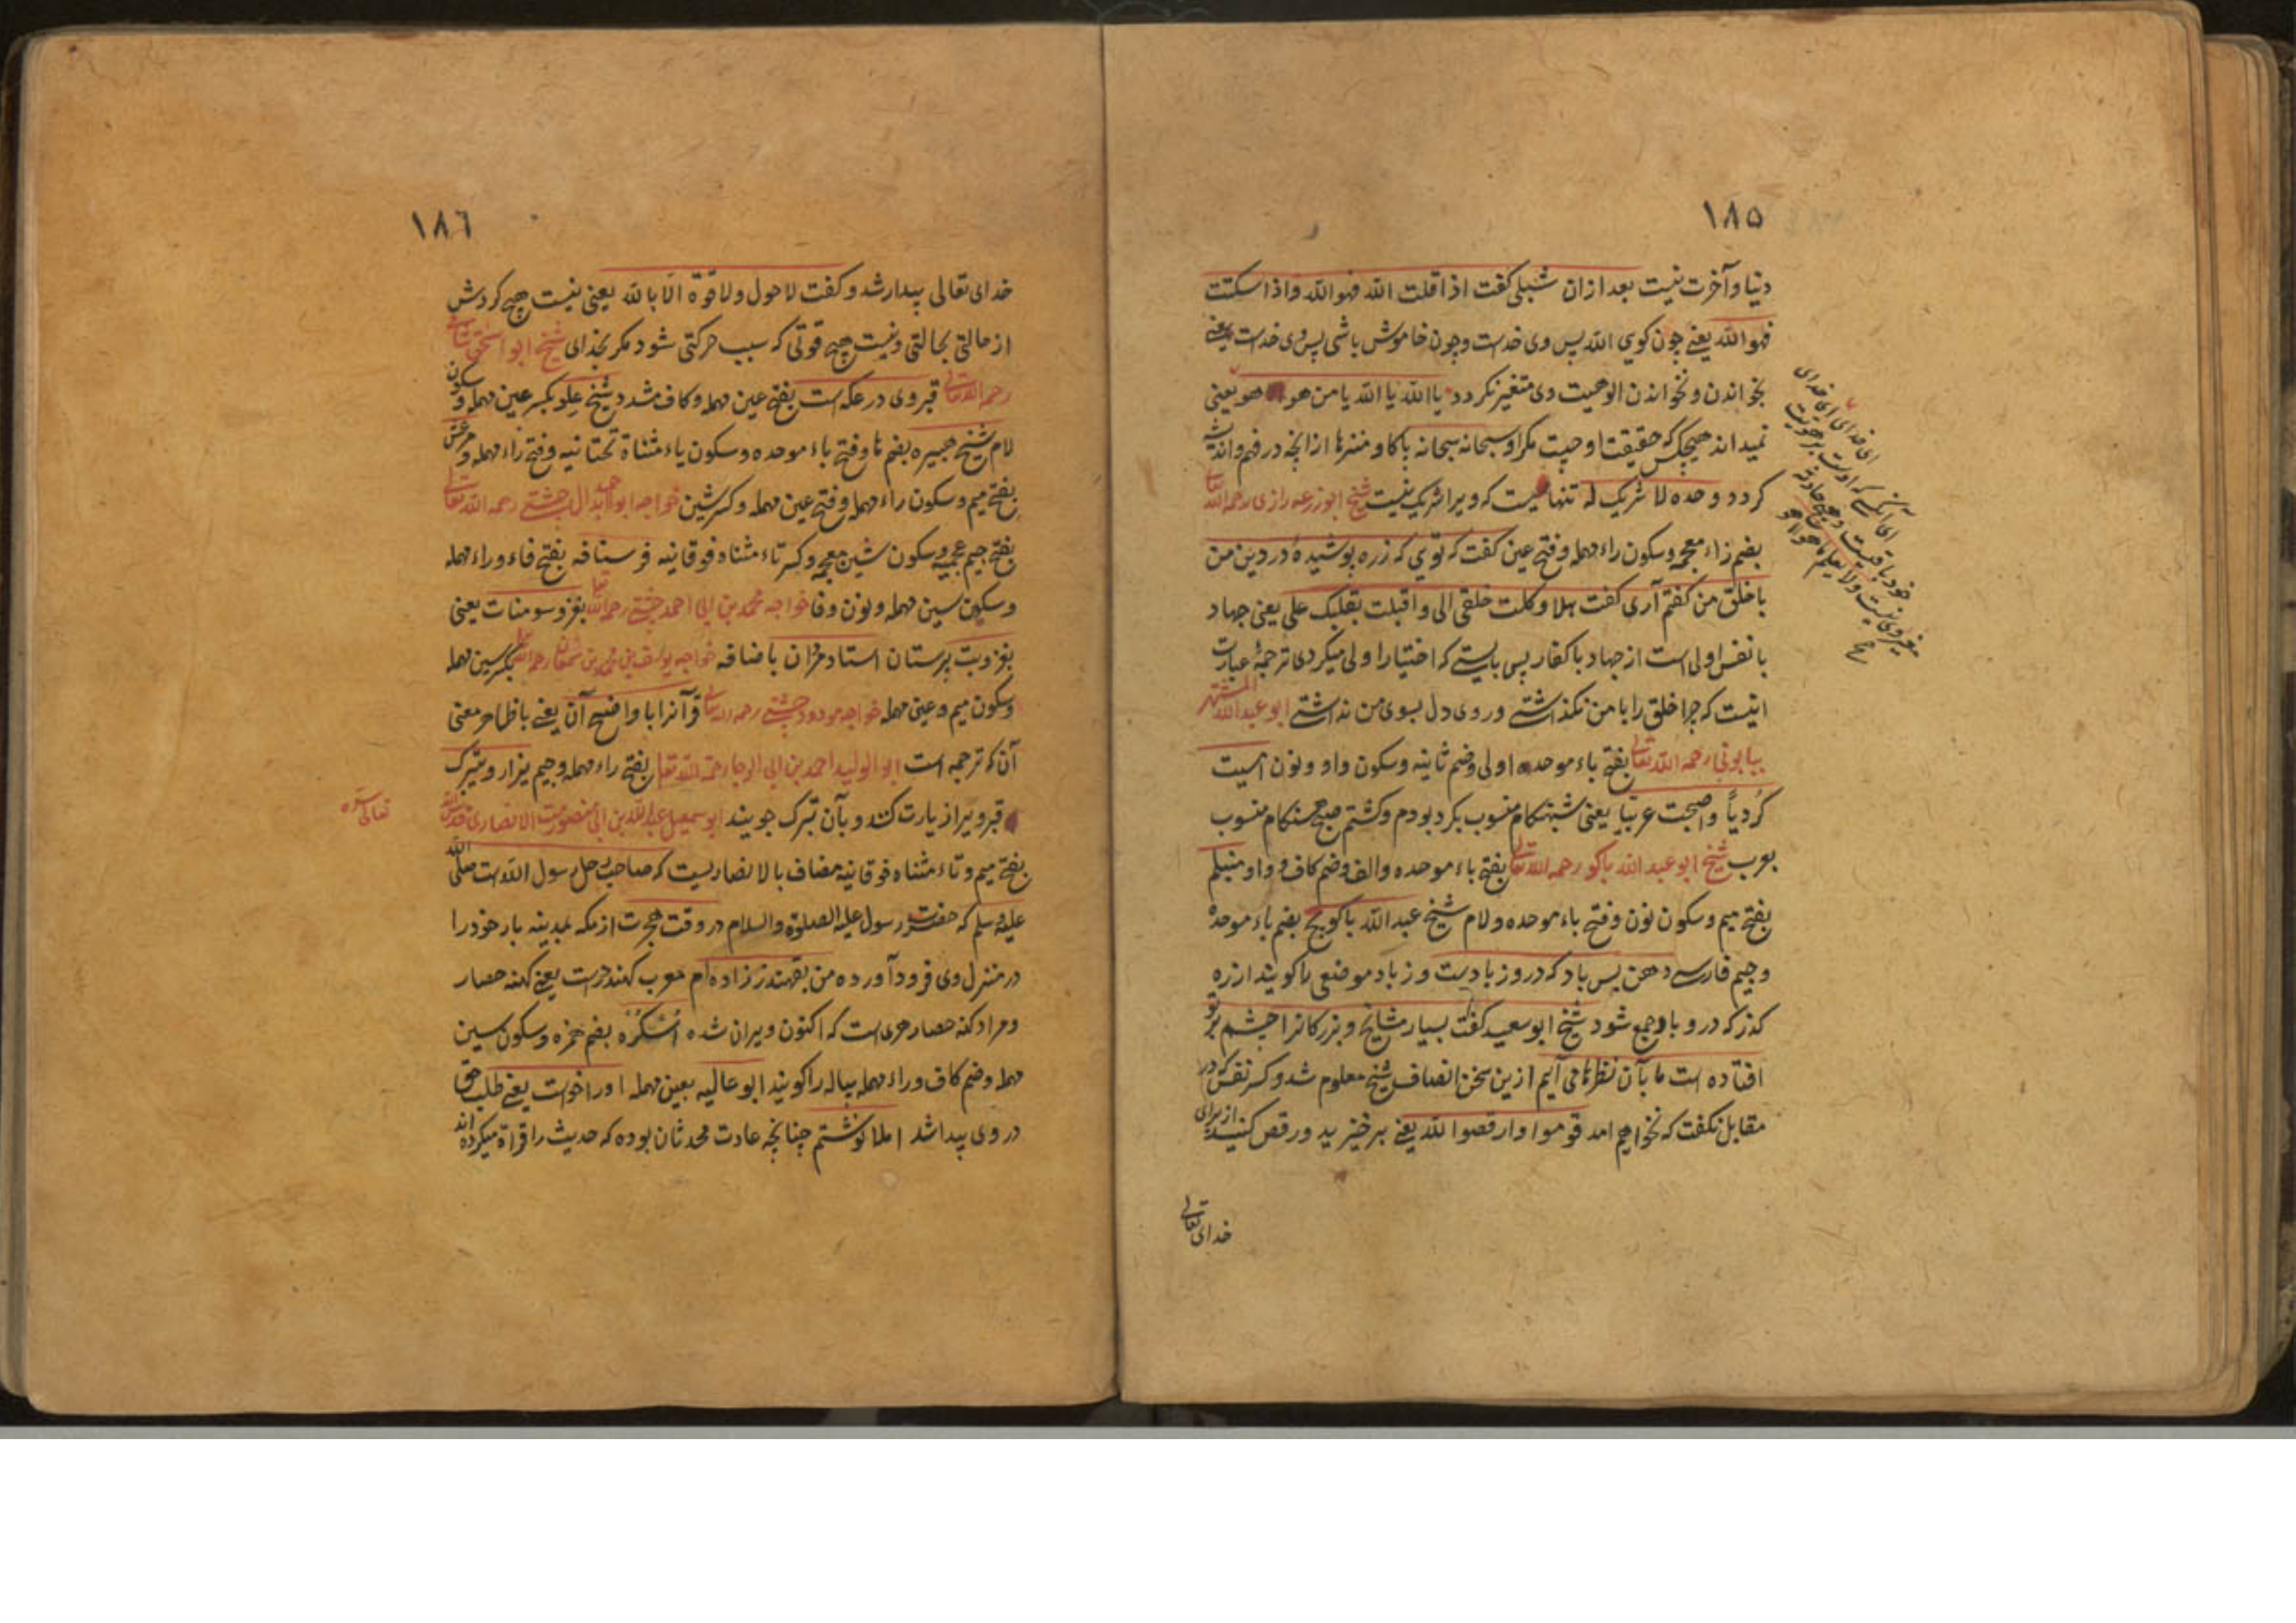 ١٨٥
دنیا و آخرت نیست بعد ازان شبلی کفت اذا قلت الله فهو الله و اذا سکتت
فهو الله یعنے چون کویی الله پس وی خداست و چون خاموش باشی پس وی خداست یعنے
بخواندن و نخواندن الوهیت وی متغیر نکردد یا الله یا الله یا من هو هو یعنی
نمیداند هیچکس که حقیقت او چیست مکر او سبحانه سبحانه پاکا و منزها ازانچه در فهم و اندیشه
کردد وحده لا شریک له تنهاییست که ویرا شریک نیست شیخ ابو زرعه رازی رحمه الله تعالی
بضم زاء معجمه و سکون راء مهمله و فتح عین کفت که تویی که زره پوشیدهٔ در دین من
با خلق من کفتم آری کفت هلا وکلت خلقی الی و اقبلت بقلبک علی یعنی جهاد
با نفس اولی است از جهاد با کفار پس بایستے که اختیار اولی میکردی ترجمهٔ عبارت
اینست که چرا خلق را با من نکذاشتے و روی دل بسوی من نداشتے ابو عبدالله المشتهر
ببابونی رحمه الله تعالی بفتح باء موحده اولی و ضم ثانیه و سکون واو و نون امسیت
کُردیاً و اصبحت عربیا یعنی شبهنکام منسوب بکرد بودم و کشتم صبح هنکام منسوب
بعرب شیخ ابو عبد الله باکو رحمه الله تعالی بفتح باء موحده والف و ضم کاف و واو منبلم
بفتح میم و سکون نون و فتح باء موحده و لام شیخ عبد الله باکو بج بضم باء موحده
و جیم فارسے دهن پس باد که در وزبادست وزباد موضعی را کویند از ره
کذر که در و باد جمع شود شیخ ابو سعید کفت بسیار مشایخ و بزرکانرا چشم بر تو
افتاده است ما بآن نظرها می آییم ازین سخن انصاف شیخ معلوم شد و کسر نفس که در
مقابل نکفت که نخواهیم امد قوموا وارقصوا لله یعنے برخیزید و رقص کنید از برای
خدای تعالی
ای خدای ای خدای
ای آنکس که اوست بر هویت
خود باقیست
١٨٦
خدای تعالی بیدار شد و کفت لا حول ولا قوة الا بالله یعنی نیست هیچ کردش
از حالتی بحالتی و نیست هیچ قوتی که سبب حرکتی شود مکر بخدای شیخ ابو اسحق شامی
رحمه الله تعالی قبر وی در عکه است بفتح عین مهمله و کاف مشدد شیخ علو بکسر عین مهمله و سکون
لام شیخ هبیره بضم ها و فتح باء موحده و سکون یاء مثناة تحتانیه و فتح راء مهمله و مرعش
بفتح میم و سکون راء مهمله و فتح عین مهمله و کسر شین خواجه ابو احمد ابدال چشتے رحمه الله تعالی
بفتح جیم عجمیه و سکون شین معجمه و کسر تاء مثناه فوقانیه فرسنافه بفتح فاء و راء مهمله
و سکون سین مهمله و نون و فا خواجه محمد بن ابی احمد چشتے رحمه الله تعا بغزو سومنات یعنی
بغزو بت پرستان استاد مردان باضافه خواجه یوسف بن محمد بن سمعان رحمه الله تعا بکسر سین مهمله
و سکون میم و عین مهمله خواجه مودود چشتے رحمه الله تعالی قرآنرا با واضح آن یعنے با ظاهر معنی
آن که ترجمه است ابو الولید احمد بن ابی الرجا رحمة الله تعا بفتح راء مهمله و جیم یزار و یتبرک
قبر ویرا زیارت کنند و بآن تبرک جویند ابو اسمعیل عبد الله بن ابی منصور مت الانصاری قدس الله
تعالی سره
بفتح میم و تاء مثناه فوقانیه مضاف بالانصاریست که صاحب رحل رسول الله است صلی الله
علیه وسلم که حضرت رسول علیه الصلوة والسلام در وقت هجرت از مکه بمدینه بار خود را
در منزل وی فرود آورده من بقهندز زاده ام معرب کهندزست یعنے کهنه حصار
و مراد کهنه حصار هری است که اکنون ویران شده اُسْکُرَّه بضم همزه و سکون سین
مهمله و ضم کاف و راء مهمله پیاله را کویند ابو عالیه بعین مهمله او را خواست یعنے طلب حق
در وی پیدا شد املا نوشتم چنانچه عادت محدثان بوده که حدیث را قراة میکرده اند